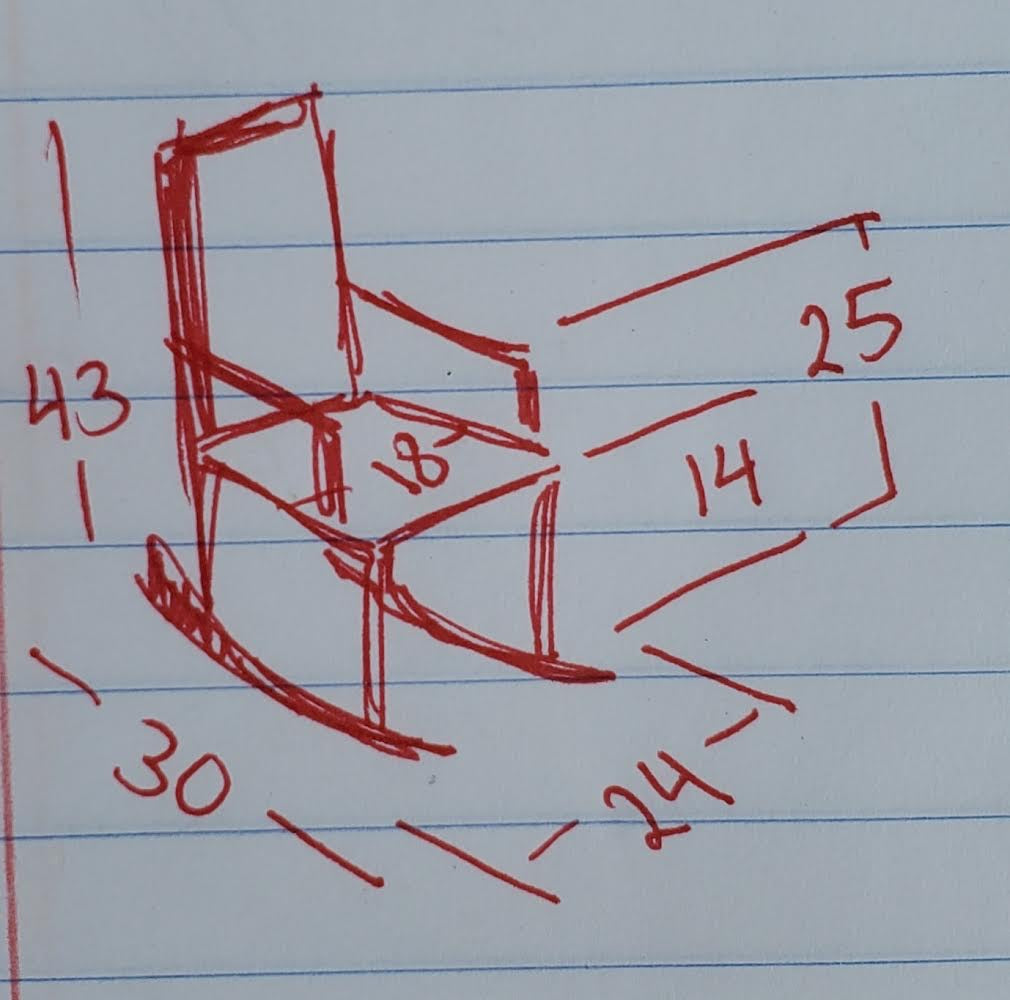 25
43
18
14
30
24